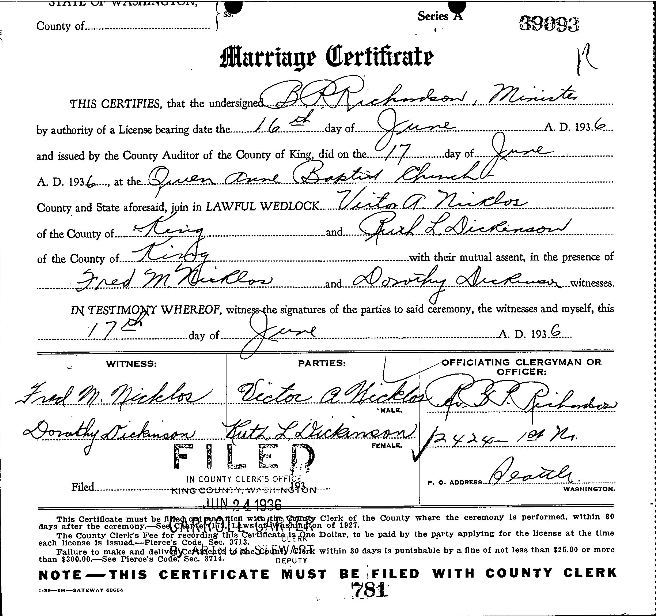 STATE OF WASHINGTON,
ss.
County of
Series A
39093
Marriage Certificate
THIS CERTIFIES, that the undersigned B P Richardson, Minister
by authority of a License bearing date the 16th day of June A. D. 1936
and issued by the County Auditor of the County of King, did on the 17 day of June
A. D. 1936, at the Queen Anne Baptist Church
County and State aforesaid, join in LAWFUL WEDLOCK Victor A Nicklos
of the County of King and Ruth L Dickinson
of the County of King with their mutual assent, in the presence of
Fred M Nicklos and Dorothy Dickinson witnesses.
IN TESTIMONY WHEREOF, witness the signatures of the parties to said ceremony, the witnesses and myself, this
17th day of June A. D. 1936
WITNESS: PARTIES: OFFICIATING CLERGYMAN OR OFFICER:
Fred M. Nicklos Victor A Nicklos B P Richardson
MALE.
Dorothy Dickinson Ruth L Dickinson 2424 - 1st No.
FEMALE.
FILED
IN COUNTY CLERK'S OFFICE
Filed 193
KING COUNTY, WASHINGTON
P. O. ADDRESS Seattle
WASHINGTON.
JUN 24 1936
This Certificate must be filed with the County Clerk of the County where the ceremony is performed, within 30
days after the ceremony.—See Laws of 1927.
The County Clerk's Fee for recording this Certificate is One Dollar, to be paid by the party applying for the license at the time
each license is issued—Pierce's Code, Sec. 3713.
CLERK
Failure to make and deliver Certificate to the County Clerk within 30 days is punishable by a fine of not less than $25.00 or more
than $300.00—See Pierce's Code, Sec. 3714.
DEPUTY
NOTE—THIS CERTIFICATE MUST BE FILED WITH COUNTY CLERK
781